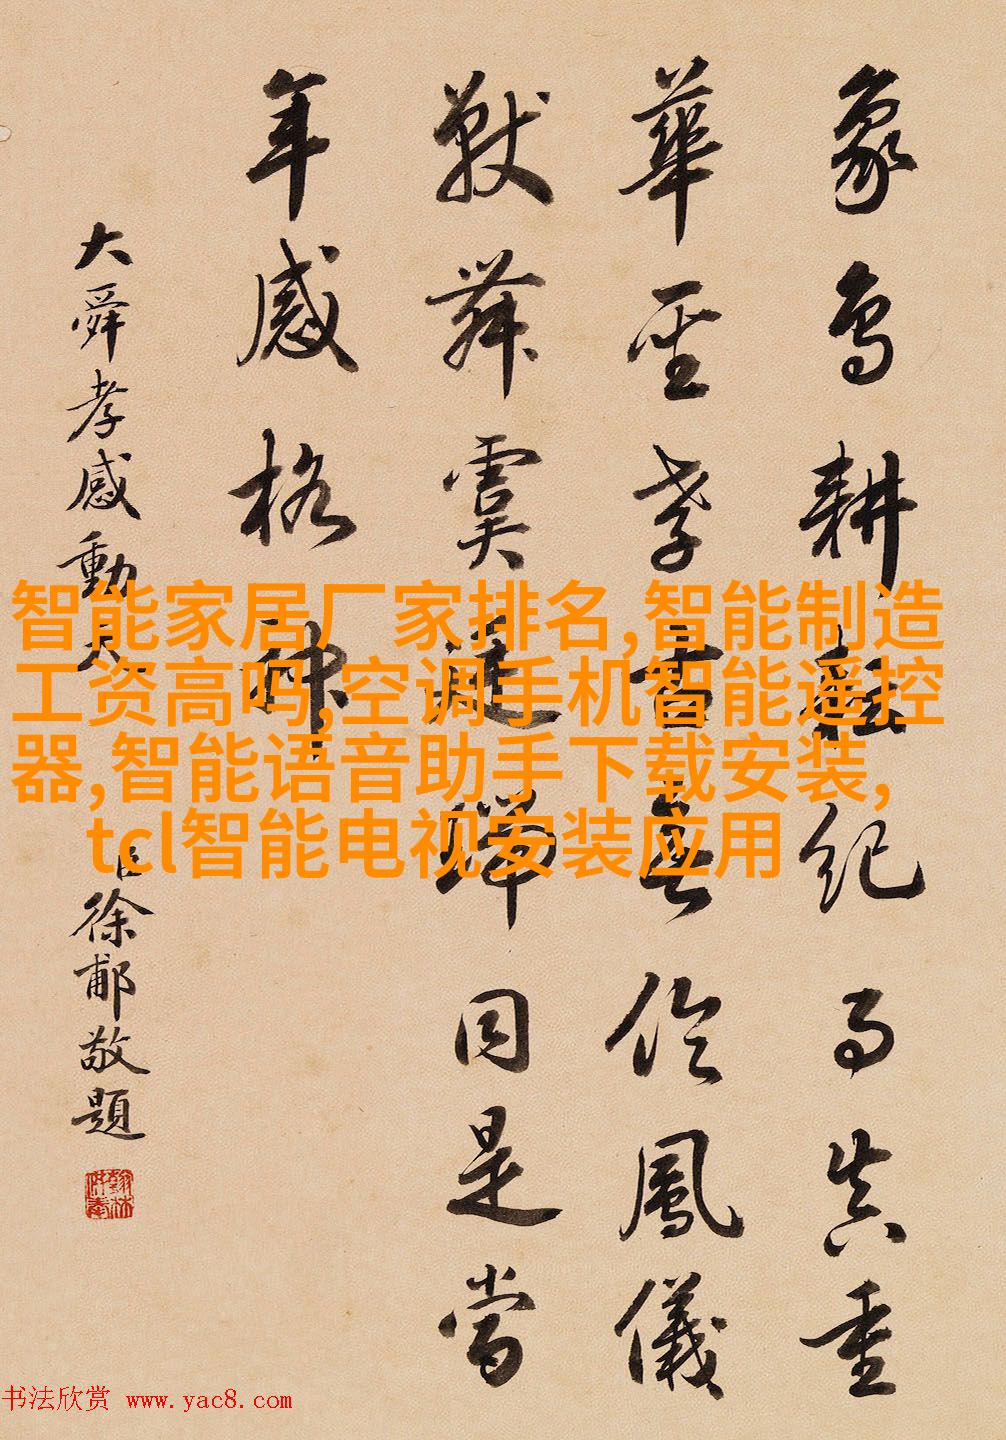 象鳥耕耘紀事真重
華聖孝古無倫鳳儀
獸舞虞廷瑞同是當
年感格神
大舜孝感動天
臣徐郙敬題
翰林供奉
智能家居厂家排名,智能制造
工资高吗,空调手机智能遥控
器,智能语音助手下载安装,
tcl智能电视安装应用
书法欣赏 www.yac8.com